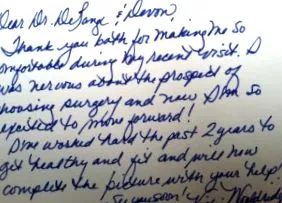 Dear Dr. DeLange & Devon,
Thank you both for making me so
comfortable during my recent visit. I
was nervous about the prospect of
choosing surgery and now I'm so
excited to move forward!
I've worked hard the past 2 years to
get healthy and fit and will now
complete the picture with your help!
See you soon!